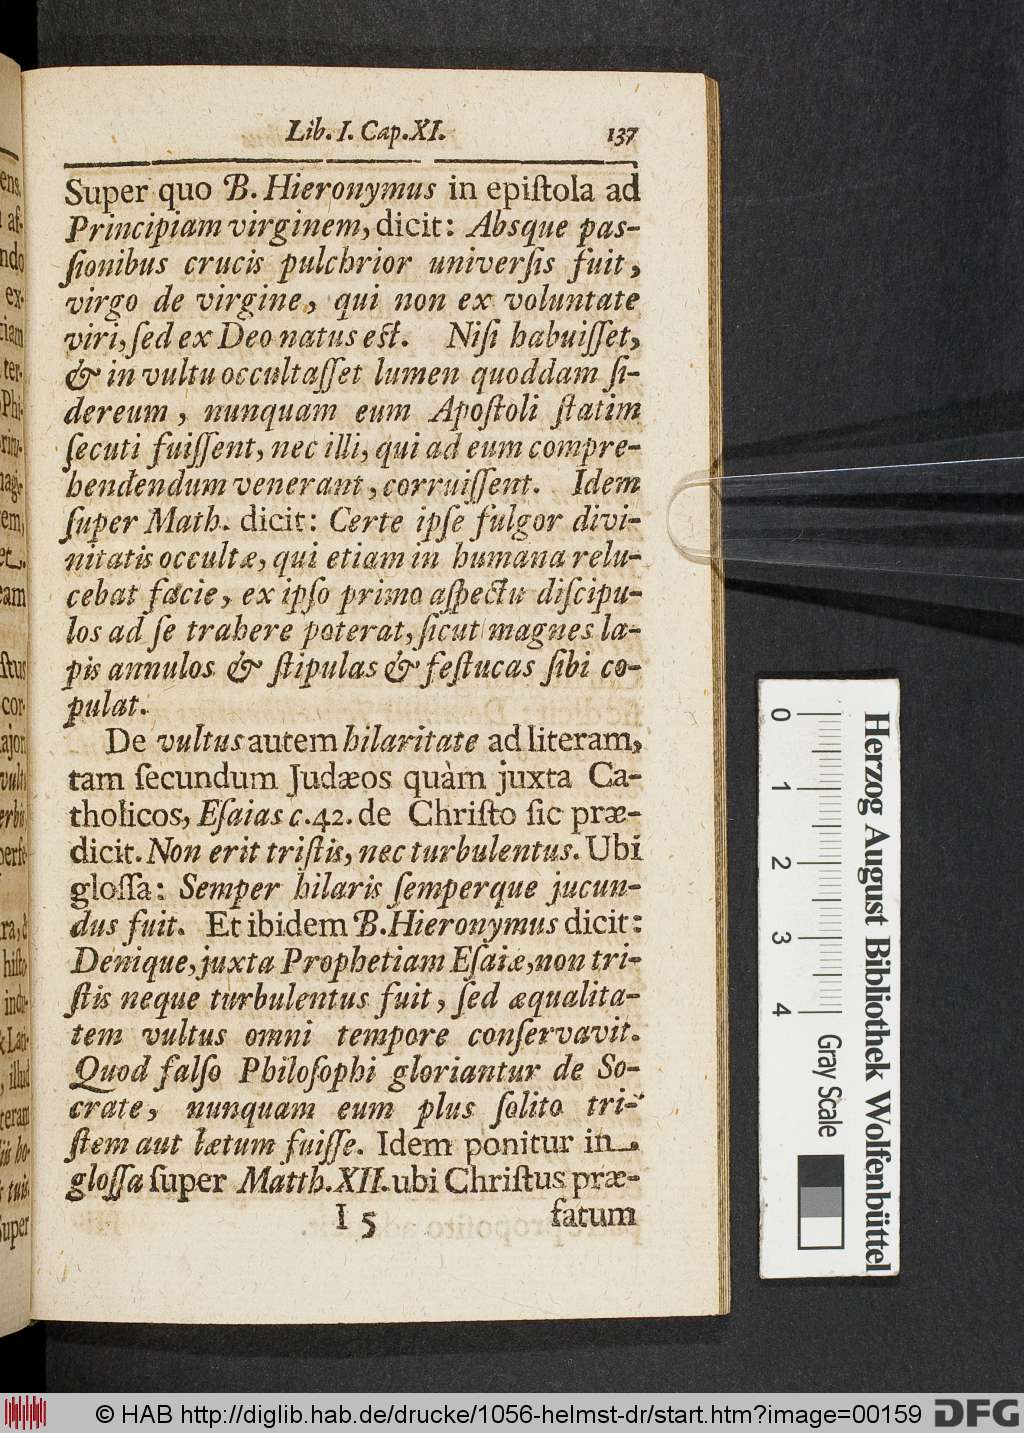 Lib. I. Cap. XI. 137
Super quo B. Hieronymus in epiſtola ad
Principiam virginem, dicit: Absque pas-
ſionibus crucis pulchrior univerſis fuit,
virgo de virgine, qui non ex voluntate
viri, ſed ex Deo natus est. Niſi habuiſſet,
& in vultu occultaſſet lumen quoddam ſi-
dereum, nunquam eum Apoſtoli ſtatim
ſecuti fuiſſent, nec illi, qui ad eum compre-
hendendum venerant, corruiſſent. Idem
ſuper Math. dicit: Certe ipſe fulgor divi-
nitatis occultæ, qui etiam in humana relu-
cebat facie, ex ipſo primo aſpectu diſcipu-
los ad ſe trahere poterat, ſicut magnes la-
pis annulos & ſtipulas & feſtucas ſibi co-
pulat.
De vultus autem hilaritate ad literam,
tam ſecundum Judæos quàm juxta Ca-
tholicos, Eſaias c. 42. de Chriſto ſic præ-
dicit. Non erit triſtis, nec turbulentus. Ubi
gloſſa: Semper hilaris ſemperque jucun-
dus fuit. Et ibidem B. Hieronymus dicit:
Denique, juxta Prophetiam Eſaiæ, non tri-
ſtis neque turbulentus fuit, ſed æqualita-
tem vultus omni tempore conſervavit.
Quod falſo Philoſophi gloriantur de So-
crate, nunquam eum plus ſolito tri-
ſtem aut lætum fuiſſe. Idem ponitur in
gloſſa ſuper Matth. XII. ubi Chriſtus præ-
I 5 fatum
ens.
af-
ndo
ex-
tiam
ter-
Phi-
em,
et
eam
ſtus
cor-
ajon
vult
hiſto
indu-
Lari-
illud
teram
tuis
Super
0 1 2 3 4
Gray Scale
Herzog August Bibliothek Wolfenbüttel
© HAB http://diglib.hab.de/drucke/1056-helmst-dr/start.htm?image=00159
DFG